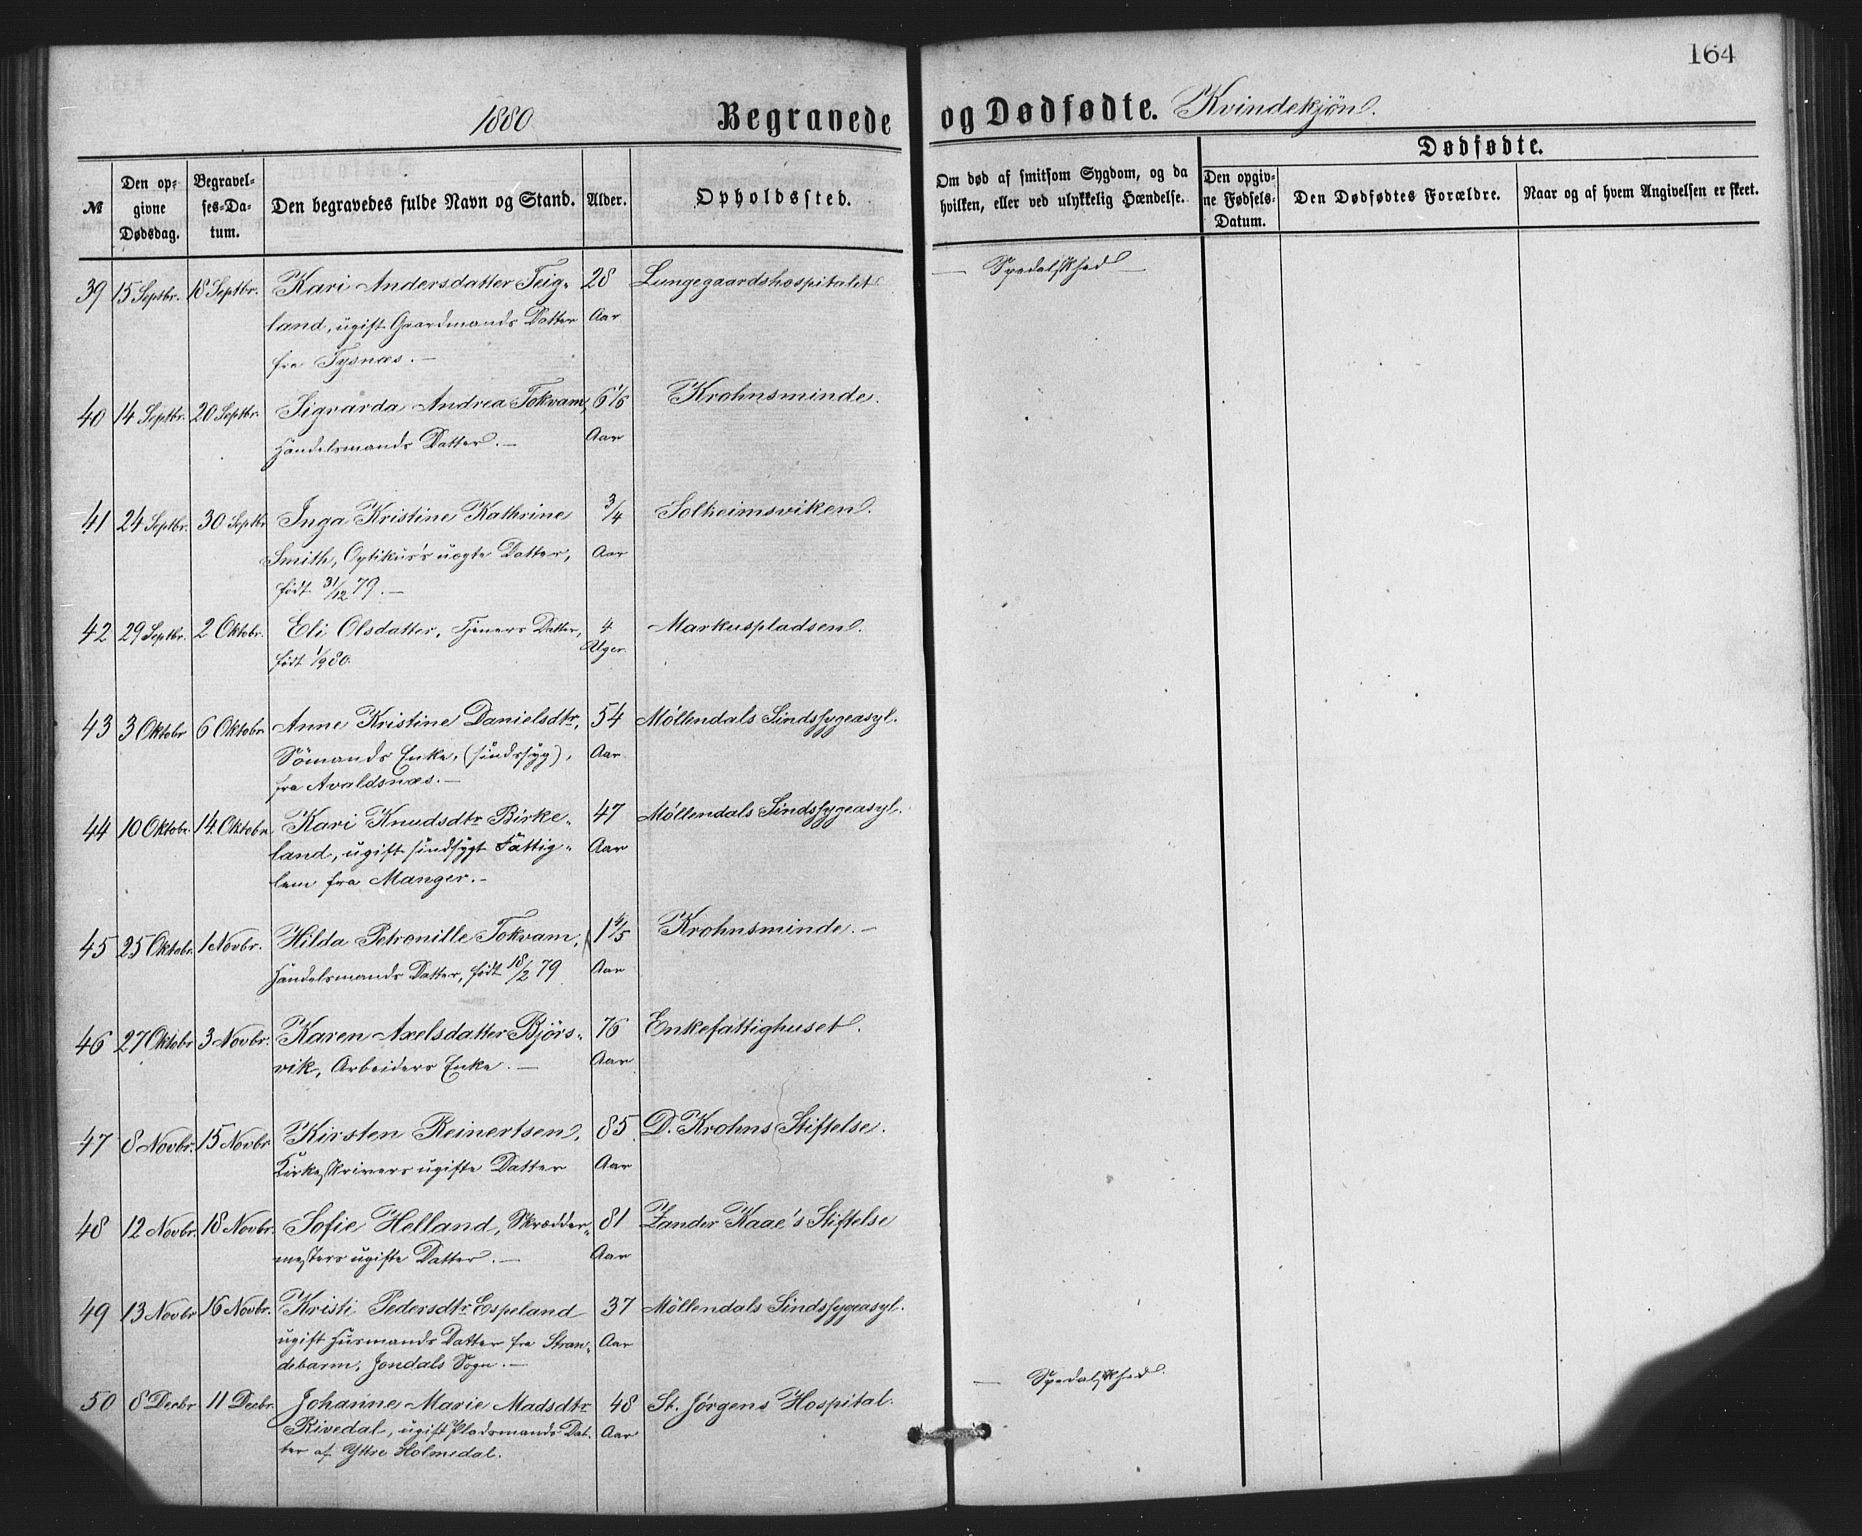 164
1880 Begravede og Dødfødte. Kvindekjön.
№
Den opgivne Dødsdag.
Begravelses-Datum.
Den begravedes fulde Navn og Stand.
Alder.
Opholdssted.
Om død af smitsom Sygdom, og da hvilken, eller ved ulykkelig Hændelse.
Dødfødte.
Den opgivne Fødsels-Datum.
Den Dødfødtes Forældre.
Naar og af hvem Angivelsen er skeet.
39 15 Septbr. 18 Septbr. Kari Andersdatter Teig- 28 Lungegaardshospitalet. — Spedalskhed —
land, ugift Gaardmands Datter Aar
fra Tysnæs. —
40 14 Septbr. 20 Septbr. Sigvarda Andrea Tokvam, 6 1/6 Krohnsminde.
Handelsmands Datter. — Aar
41 24 Septbr. 30 Septbr Inga Kristine Kathrine 3/4 Solheimsviken.
Smith, Optikus's uægte Datter, Aar
født 31/12 79. —
42 29 Septbr. 2 Oktobr. Eli Olsdatter, Tjeners Datter, 4 Markuspladsen.
født 1/9 80. Uger
43 3 Oktobr 6 Oktobr. Anne Kristine Danielsdtr, 54 Möllendals Sindssygeasyl.
Sömands Enke, (sindssyg), Aar
fra Avaldsnæs. —
44 10 Oktobr. 14 Oktobr. Kari Knudsdtr Birke- 47 Möllendals Sindssygeasyl.
land, ugift sindsygt Fattig- Aar
lem fra Manger. —
45 25 Oktobr. 1 Novbr. Hilda Petronille Tokvam, 1 4/5 Krohnsminde. —
Handelsmands Datter, født 18/2 79 Aar
46 27 Oktobr 3 Novbr. Karen Axelsdatter Bjørs- 76 Enkefattighuset.
vik, Arbeiders Enke. — Aar
47 8 Novbr. 15 Novbr Kirsten Reinertsen, 85 D. Krohns Stiftelse.
Kirkeskrivers ugifte Datter Aar
48 12 Novbr. 18 Novbr. Sofie Helland, Skrædder- 81 Zander Kaae's Stiftelse
mesters ugifte Datter. — Aar
49 13 Novbr 16 Novbr. Kristi Pedersdtr Espeland 37 Möllendals Sindssygeasyl.
ugift Husmands Datter fra Stran- Aar
debarm, Jondals Sogn. —
50 8 Decbr 11 Decbr. Johanne Marie Madsdtr 48 St. Jörgens Hospital. — Spedalskhed.
Rivedal, ugift Pladsmands Dat- Aar
ter af Yttre Holmedal.